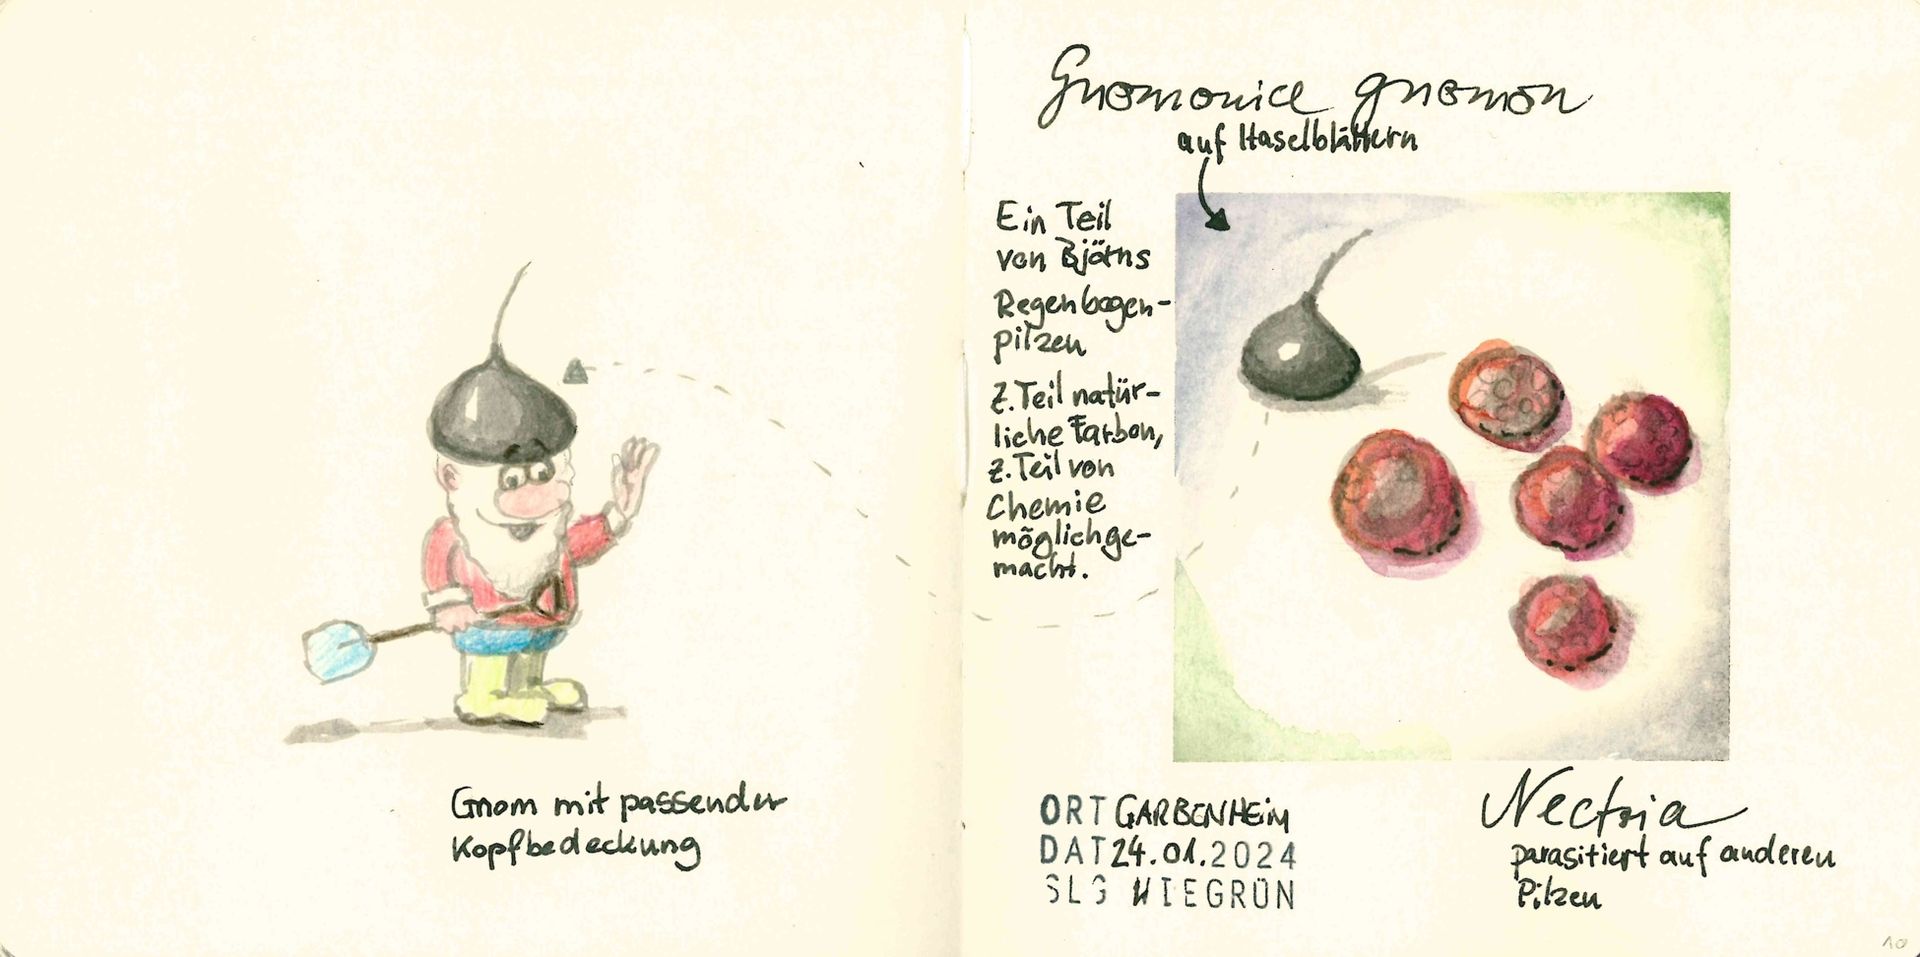 Gnom mit passender
Kopfbedeckung
Gnomonica gnomon
auf Haselblättern
Ein Teil
von Björns
Regenbogen-
pilzen
z. Teil natür-
liche Farben,
z. Teil von
Chemie
möglichge-
macht.
ORT GARBENHEIM
DAT 24.01.2024
SLG WIEGRÜN
Nectria
parasitiert auf anderen
Pilzen
10